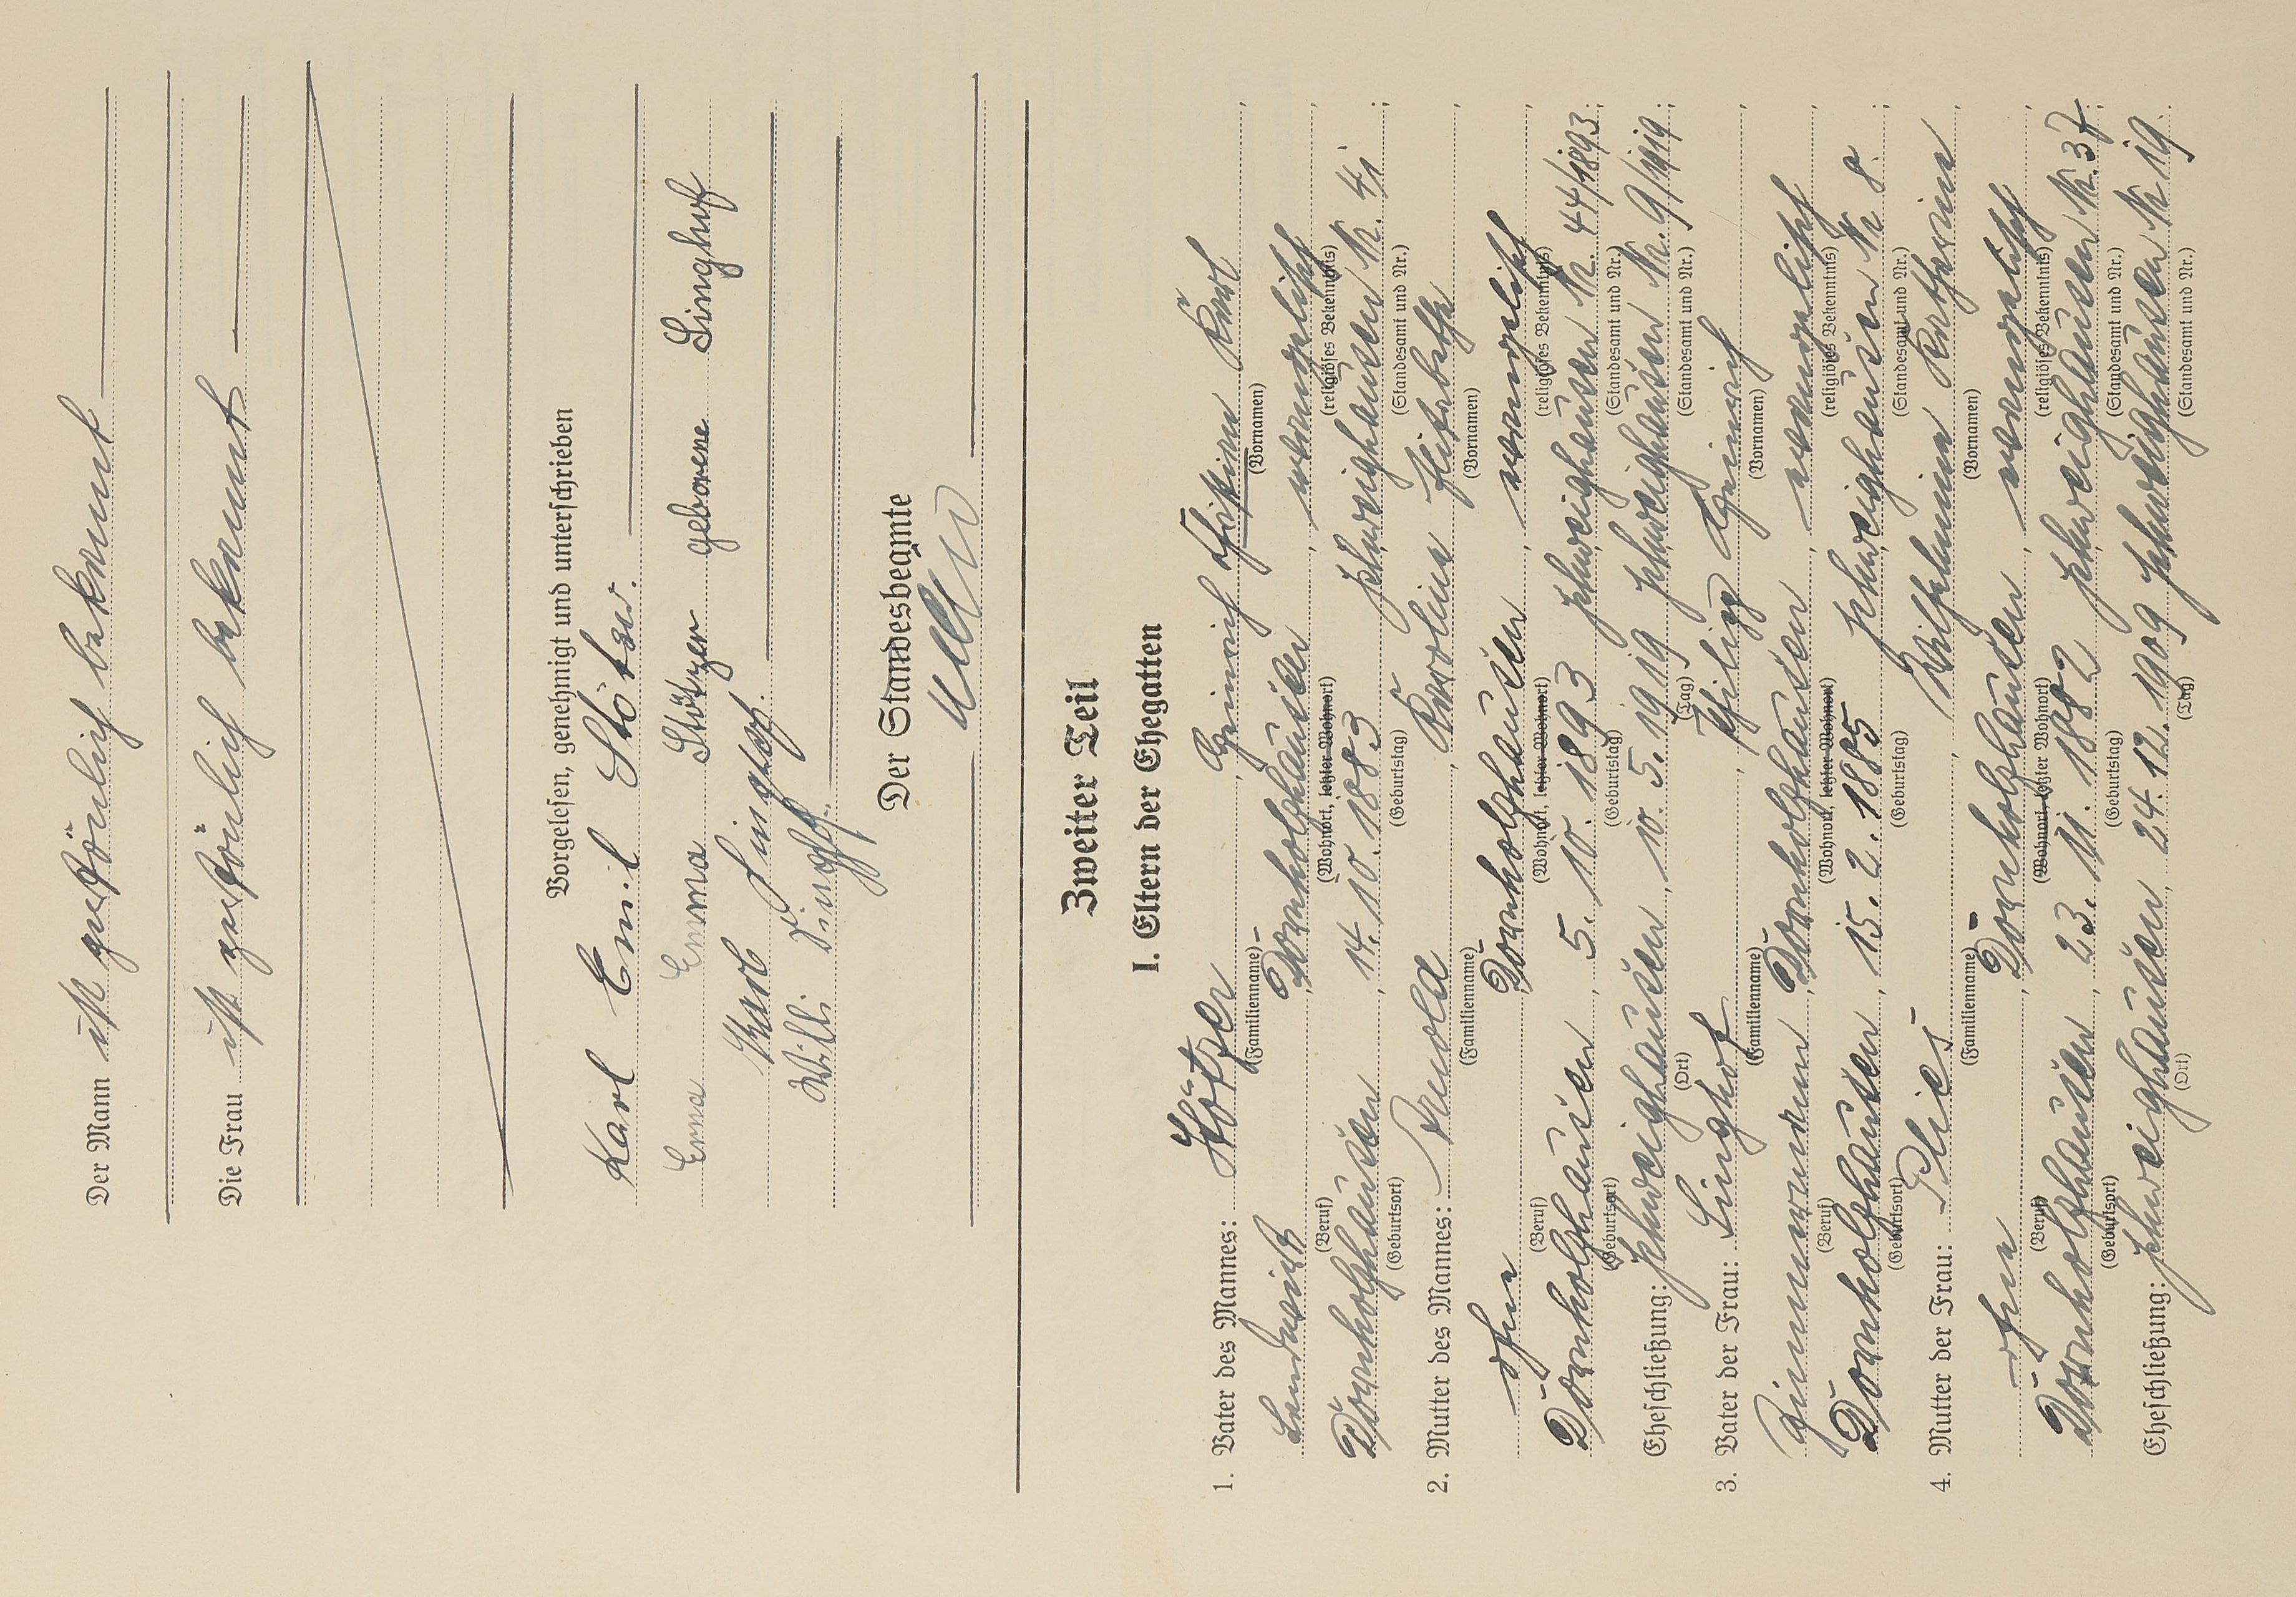 Der Mann ist persönlich bekannt
Die Frau ist persönlich bekannt
Vorgelesen, genehmigt und unterschrieben
Karl Emil Stötzer.
Erna Emma Stötzer geborene Linghof
Karl Linghof.
Willi Linghof.
Der Standesbeamte
Zweiter Teil
I. Eltern der Ehegatten
1. Vater des Mannes: Stötzer, Heinrich Christian Karl,
(Familienname) (Vornamen)
Landwirt, Dörnholzhausen, evangelisch,
(Beruf) (Wohnort, letzter Wohnort) (religiöses Bekenntnis)
Dörnholzhausen, 14. 10. 1883 Schweighausen Nr. 41;
(Geburtsort) (Geburtstag) (Standesamt und Nr.)
2. Mutter des Mannes: Arnold, Karoline Elisabethe,
(Familienname) (Vornamen)
ohne, Dörnholzhausen, evangelisch,
(Beruf) (Wohnort, letzter Wohnort) (religiöses Bekenntnis)
Dörnholzhausen, 5. 10. 1893 Schweighausen Nr. 44/1893;
(Geburtsort) (Geburtstag) (Standesamt und Nr.)
Eheschließung: Schweighausen, 10. 5. 1919 Schweighausen Nr. 9/1919;
(Ort) (Tag) (Standesamt und Nr.)
3. Vater der Frau: Linghof, Philipp Heinrich,
(Familienname) (Vornamen)
Zimmermann, Dörnholzhausen, evangelisch,
(Beruf) (Wohnort, letzter Wohnort) (religiöses Bekenntnis)
Dörnholzhausen, 15. 2. 1885 Schweighausen Nr. 8.;
(Geburtsort) (Geburtstag) (Standesamt und Nr.)
4. Mutter der Frau: Plies, Wilhelmine Katharine,
(Familienname) (Vornamen)
ohne, Dörnholzhausen, evangelisch,
(Beruf) (Wohnort, letzter Wohnort) (religiöses Bekenntnis)
Dörnholzhausen, 23. 11. 1882 Schweighausen Nr. 37;
(Geburtsort) (Geburtstag) (Standesamt und Nr.)
Eheschließung: Schweighausen, 24. 12. 1909 Schweighausen Nr 19.
(Ort) (Tag) (Standesamt und Nr.)